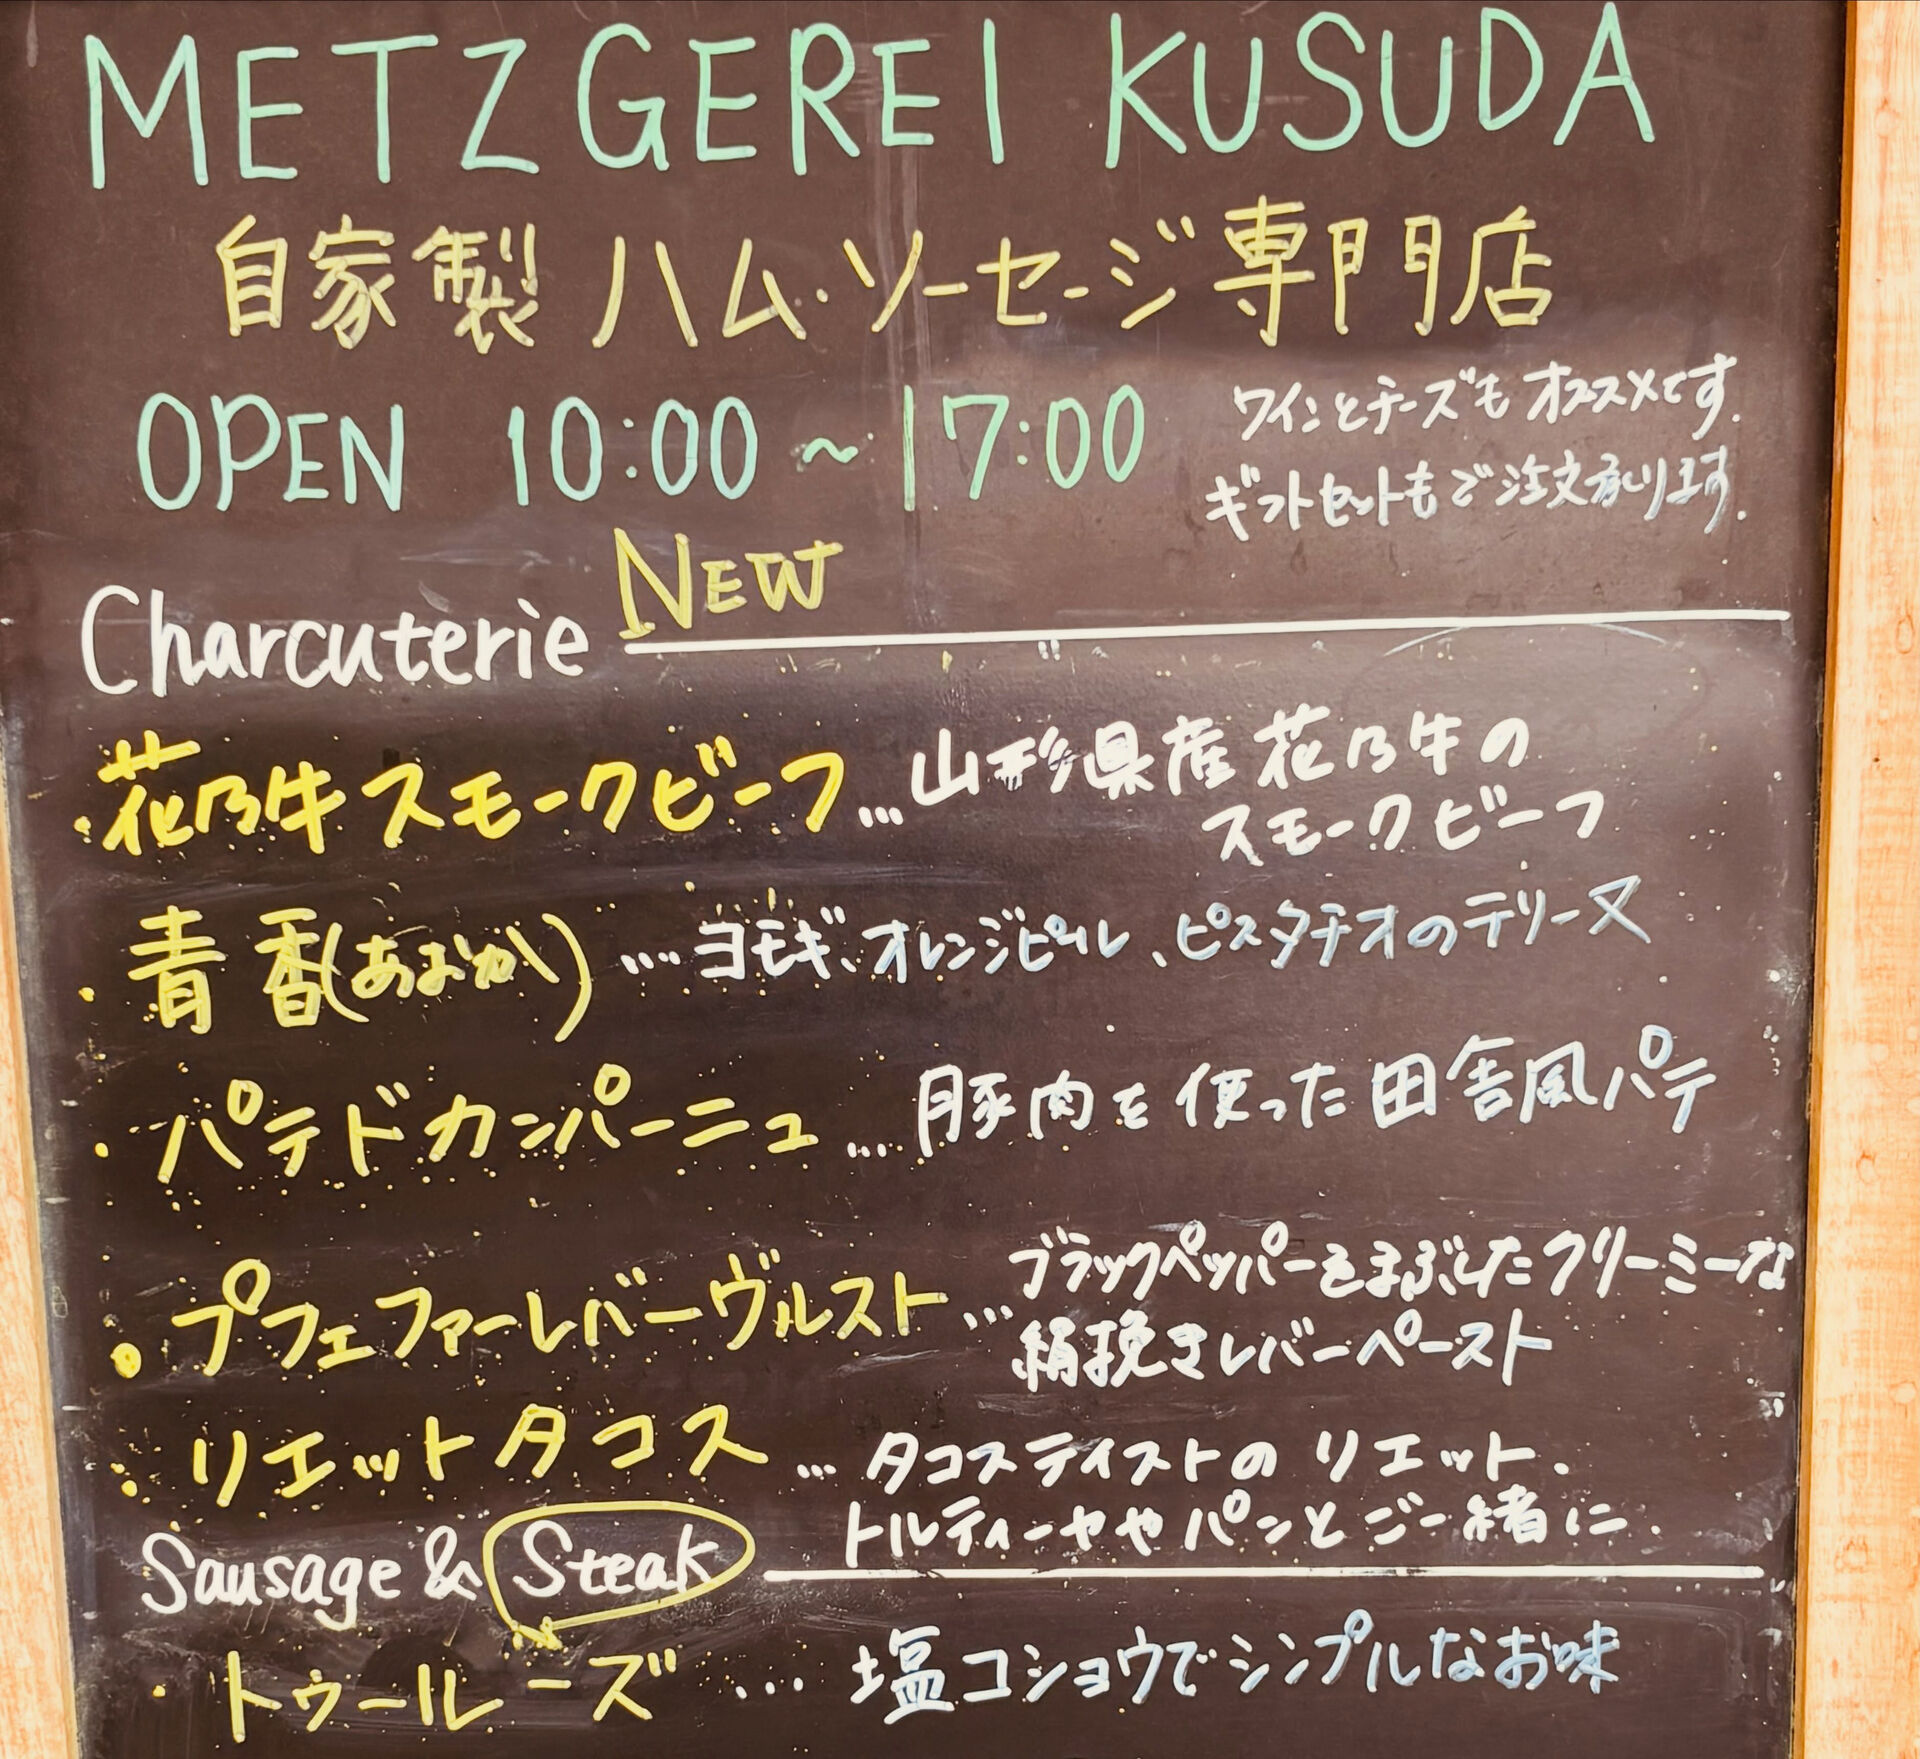 METZGEREI KUSUDA
自家製 ハム・ソーセージ専門店
OPEN 10:00～17:00
ワインとチーズもオススメです.
ギフトセットもご注文承ります.
Charcuterie NEW
・花乃牛スモークビーフ…山形県産 花乃牛の
スモークビーフ
・青香(あおか)…ヨモギ、オレンジピール、ピスタチオのテリーヌ
・パテドカンパーニュ…豚肉を使った田舎風パテ
・プフェファーレバーヴルスト…ブラックペッパーをまぶしたクリーミーな
絹挽きレバーペースト
・リエットタコス…タコステイストのリエット.
トルティーヤやパンとご一緒に.
Sausage & Steak
・トゥールーズ…塩コショウでシンプルなお味